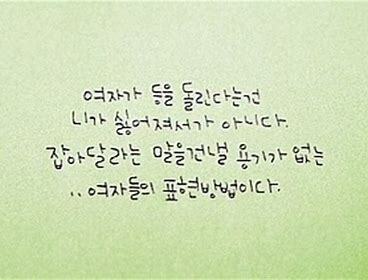 여자가 등을 돌린다는건
니가 싫어져서가 아니다.
잡아달라는 말을건낼 용기가 없는
..여자들의 표현방법이다.